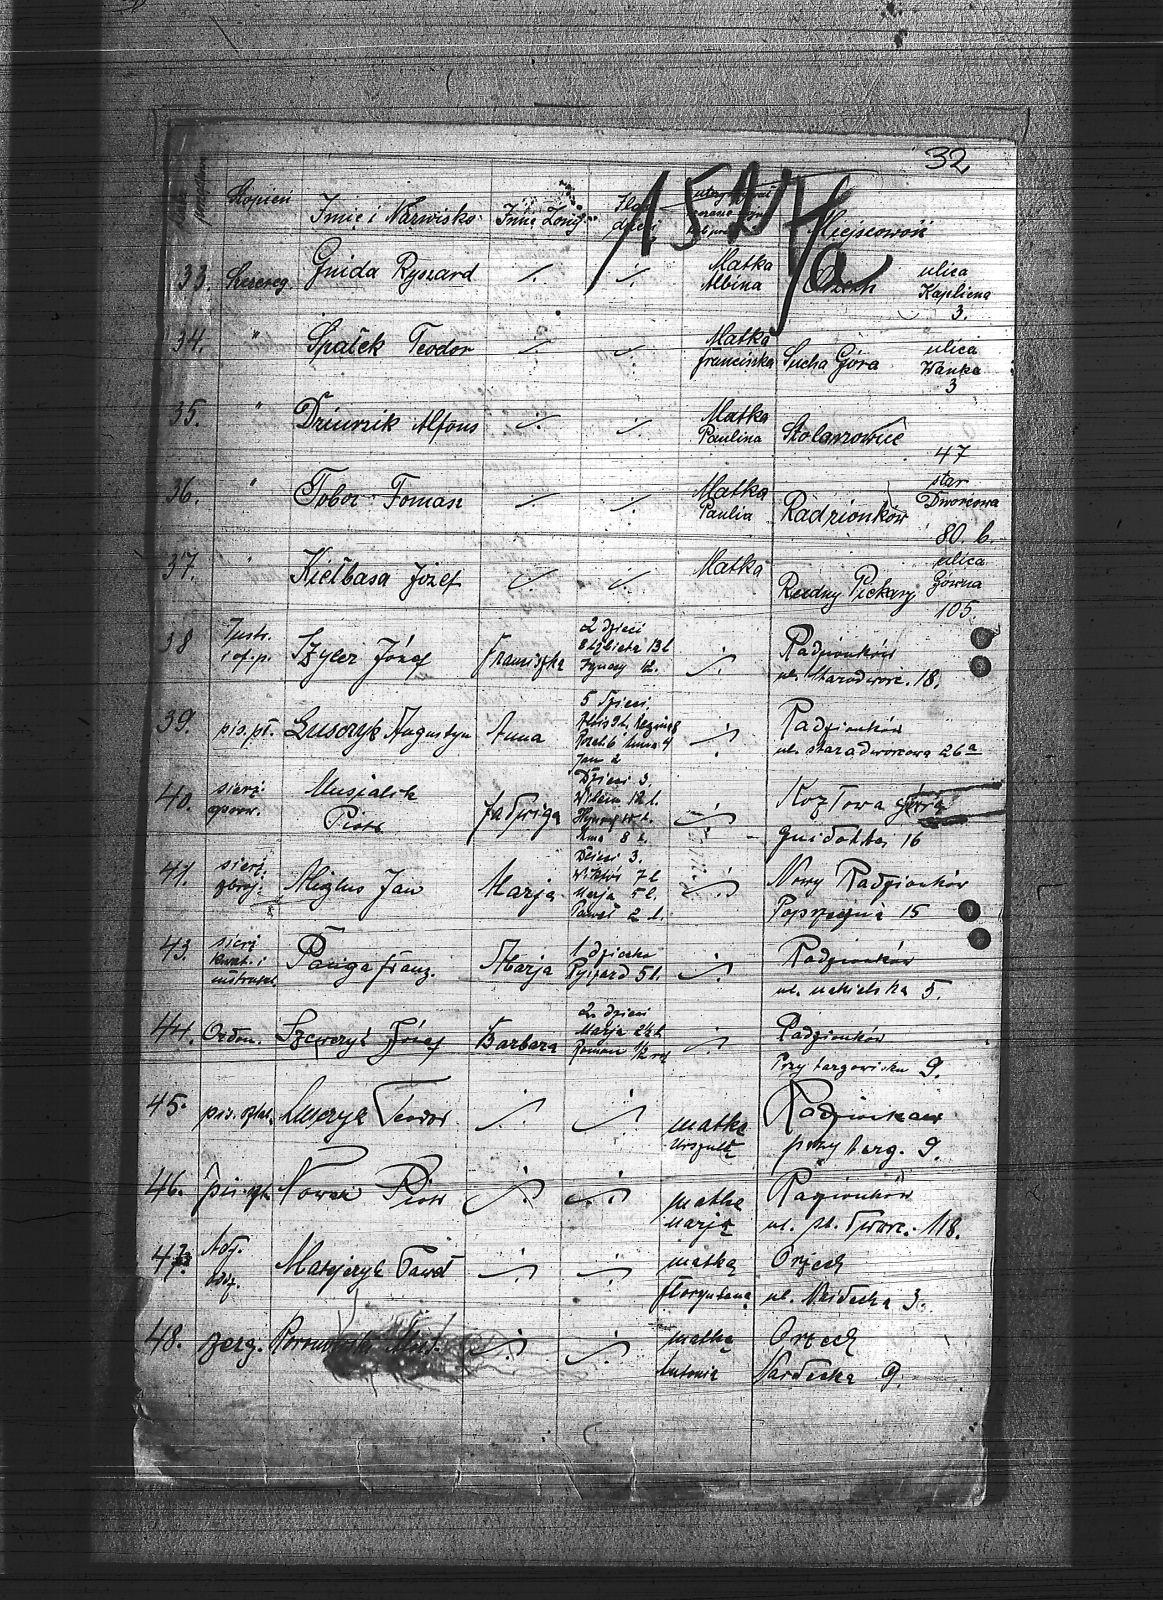 32
Stopień Imię i Nazwisko Imię Żony Miejscowość
1527/a
33. Szereg. Gnida Ryszard ./. ./. Matka Albina Orzech ulica Kaplicna 3.
34. " Spałek Teodor ./. ./. Matka Franciszka Sucha Góra ulica Wanka 3
35. " Dziurnik Alfons ./. ./. Matka Paulina 47
36. " Tobor Toman ./. ./. Matka Paulia Radzionków star Dworcowa 80 b.
37. " Kiełbasa Józef ./. ./. Matka Rudny Piekary ulica Gówna 105.
38 Szyler Józef Franciszka 2 dzieci Elżbieta 13 l Ignacy 12. ./. Radzionków ul. Starodworc. 18.
39. pis. pł. Lusczyk Augustyn Anna 5 dzieci. Jan 2 ./. Radzionków ul. staradworcowa 26a
40. sierż. Musialik Piotr Jadwiga Dzieci 3. Wilem 12 l. 8 l. ./. Kozłowa góra Guidotta 16
41. sierż. zbroj. Miglus Jan Marja Dzieci 3. Wiktor 7 l Marja 5 l. Paweł 2 l. ./. Nowy Radzionków Poprzeczna 15
43. sierż Paniga Franz. Marja 1 dziecko Ryszard 5 l. ./. Radzionków ul. nakielska 5.
44. Ordon. Szewczyk Józef Barbara 2 dzieci Marja 2½ l. Roman ½ ro ./. Radzionków Przy targowisku 9.
45. Lusczyk Teodor ./. ./. matka Urszula Radzionków przy targ. 9.
46. Nowak Piotr ./. ./. matka Marja Radzionków 118.
47. Adj. Matejczyk Paweł ./. ./. matka Floryntena Orzech ul. Nardecka 3.
48. szerg. ./. ./. matka Antonia Orzech Nardecka 9.